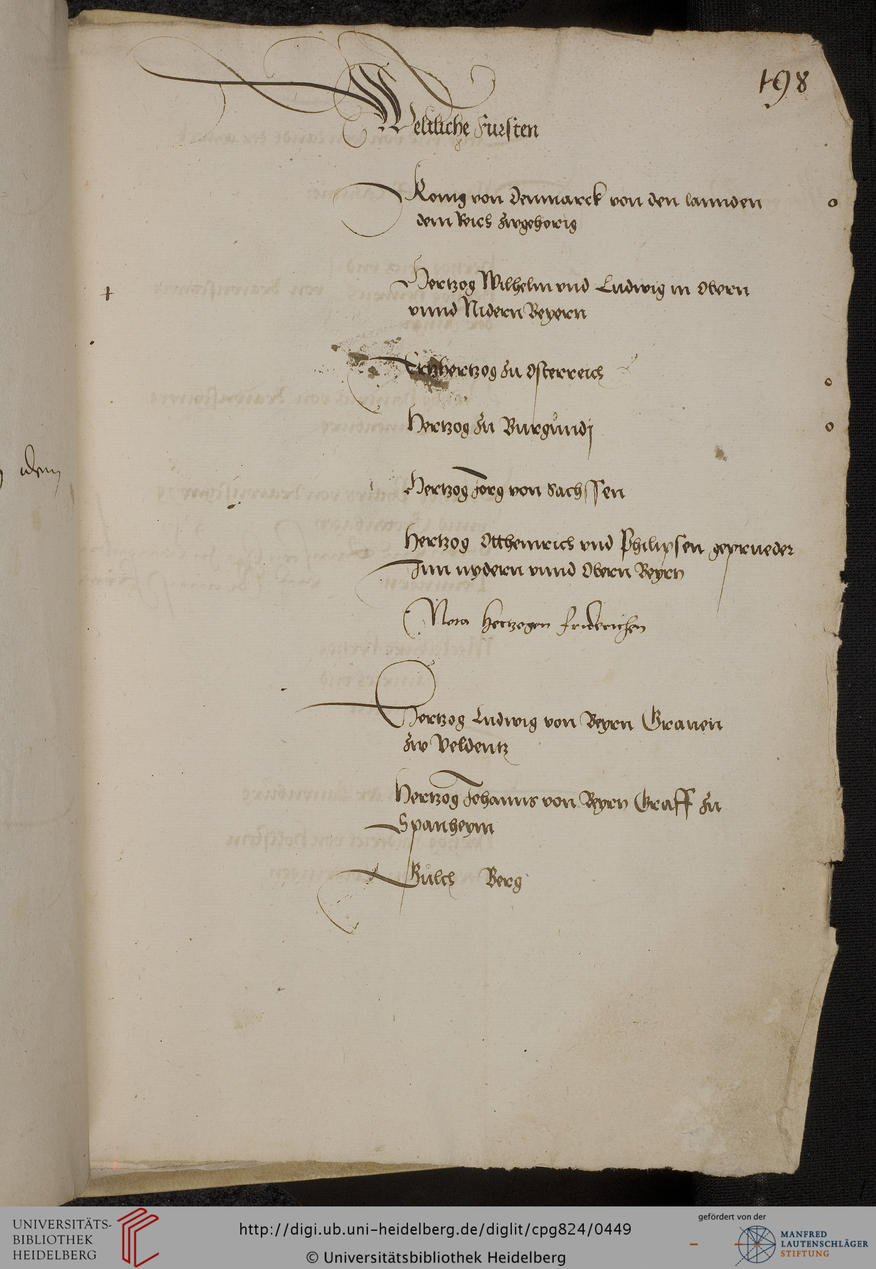 198
Weltliche Fursten
Konig von Denmarck von den lannden
dem Reich zugehorig
Hertzog Wilhelm vnd Ludwig in Obern
vnnd Nidern Beyern
Ertzhertzog zu Osterreich
Hertzog zu Burgundj
Hertzog Jorg von Sachssen
Hertzog Ottheinrich vnd Philipsen geprueder
Inn nydern vnnd Obern Beyrn
Nota Hertzogen Friderichen
Hertzog Ludwig von Beyrn Grauen
zw Veldentz
Hertzog Johanns von Beyrn Graff zu
Spanheym
Gulch Berg
UNIVERSITÄTS-
BIBLIOTHEK
HEIDELBERG
http://digi.ub.uni-heidelberg.de/diglit/cpg824/0449
© Universitätsbibliothek Heidelberg
gefördert von der
MANFRED
LAUTENSCHLÄGER
STIFTUNG